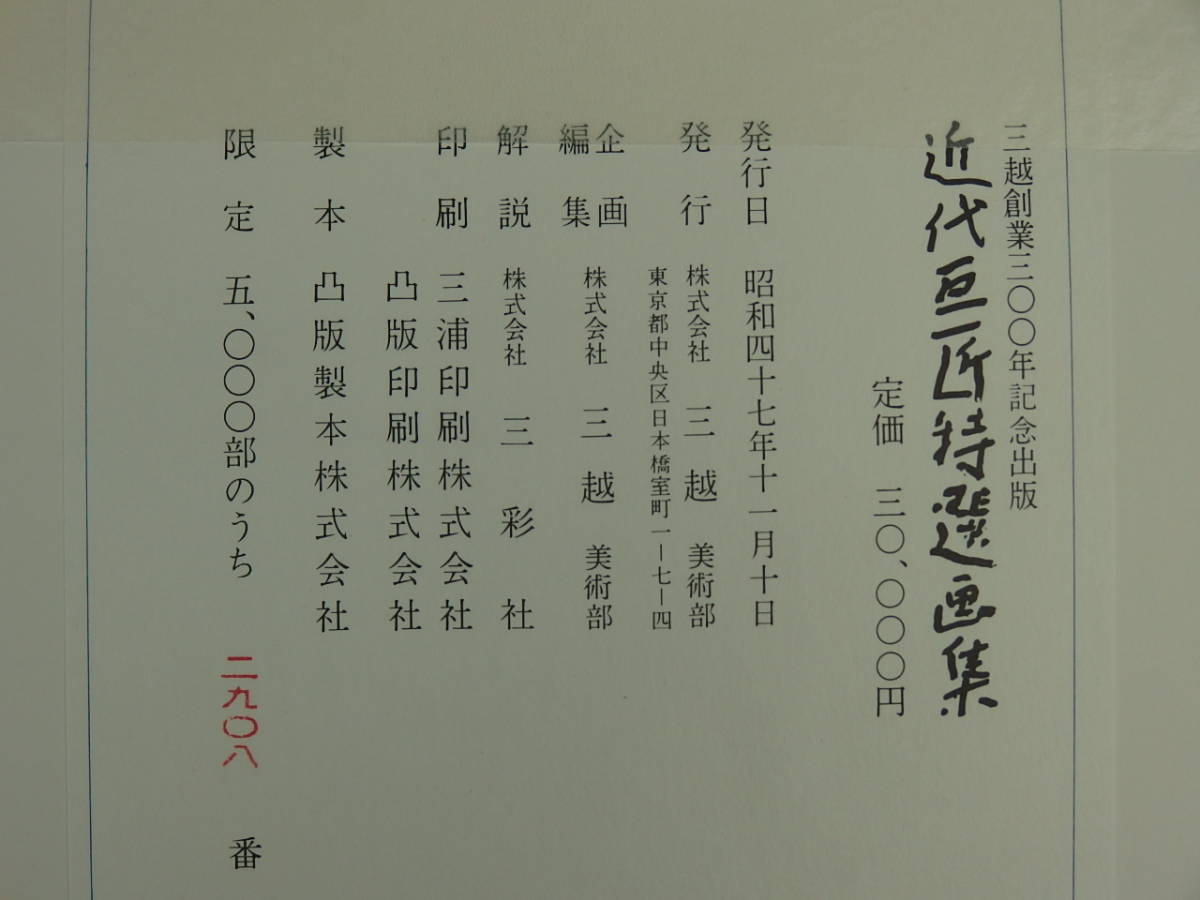 三越創業三〇〇年記念出版
近代巨匠特選画集
定価 三〇、〇〇〇円
発行日 昭和四十七年十一月十日
発行 株式会社 三越 美術部
東京都中央区日本橋室町一ー七ー四
企画
編集 株式会社 三越 美術部
解説 株式会社 三彩社
印刷 三浦印刷株式会社
凸版印刷株式会社
製本 凸版製本株式会社
限定 五、〇〇〇部のうち 二九〇八 番